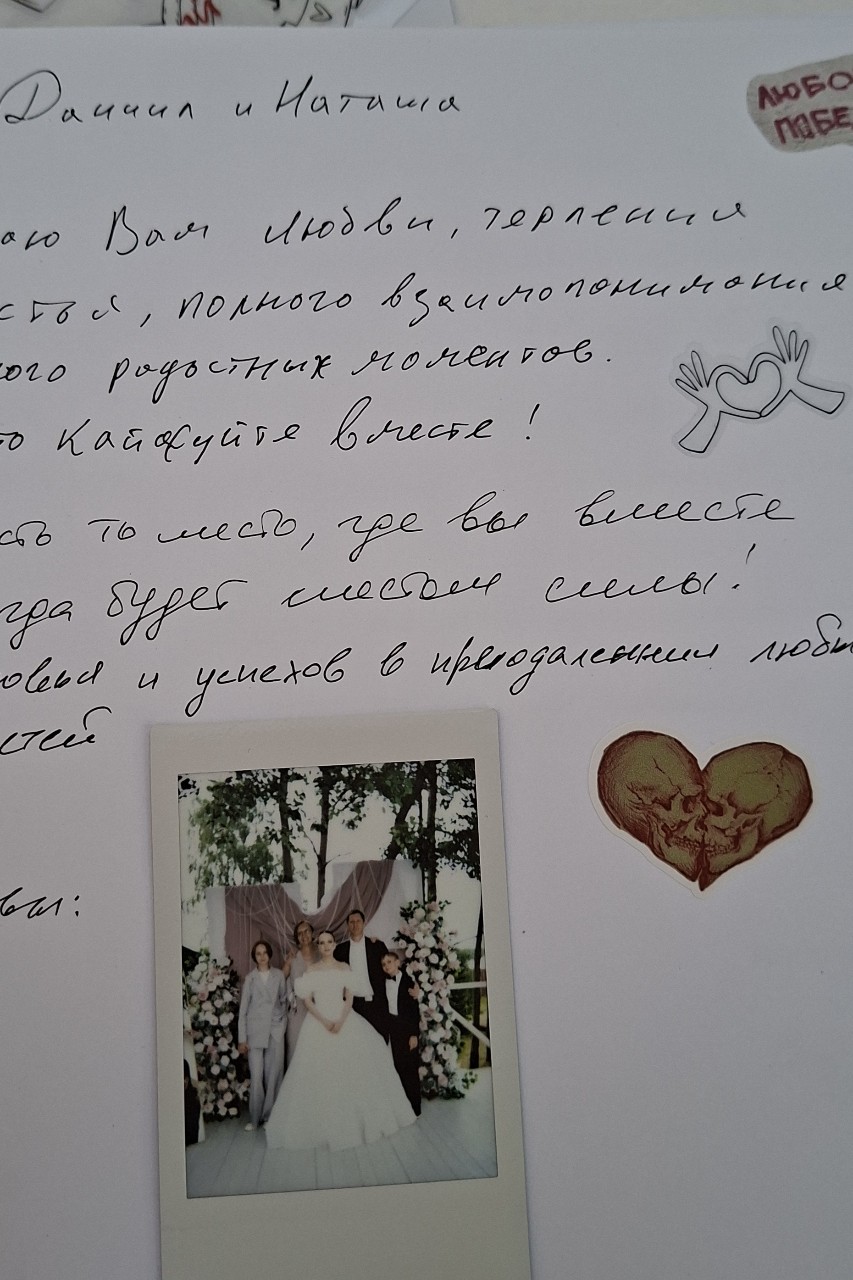 Даниил и Наташа
ЛЮБО
ПОБЕ
аю Вам любви, терпения
стья, полного взаимопонимания
ого радостных моментов.
то Кайфуйте вместе!
сть то место, где вы вместе
гда будет местом силы!
овья и успехов в преодалении любы
стей
вы: